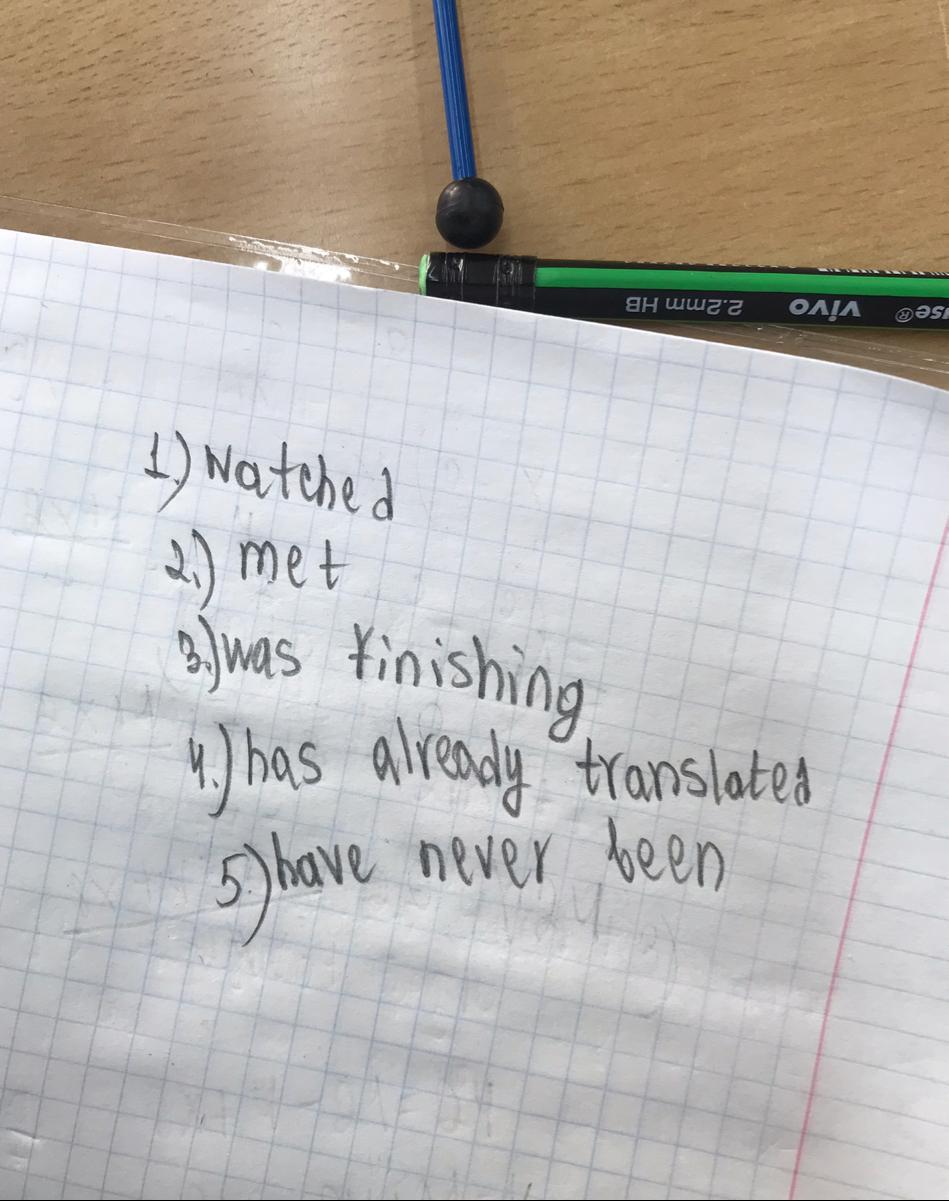 2.2mm HB vivo use®
1.) Watched
2.) met
3.) was finishing
4.) has already translated
5.) have never been